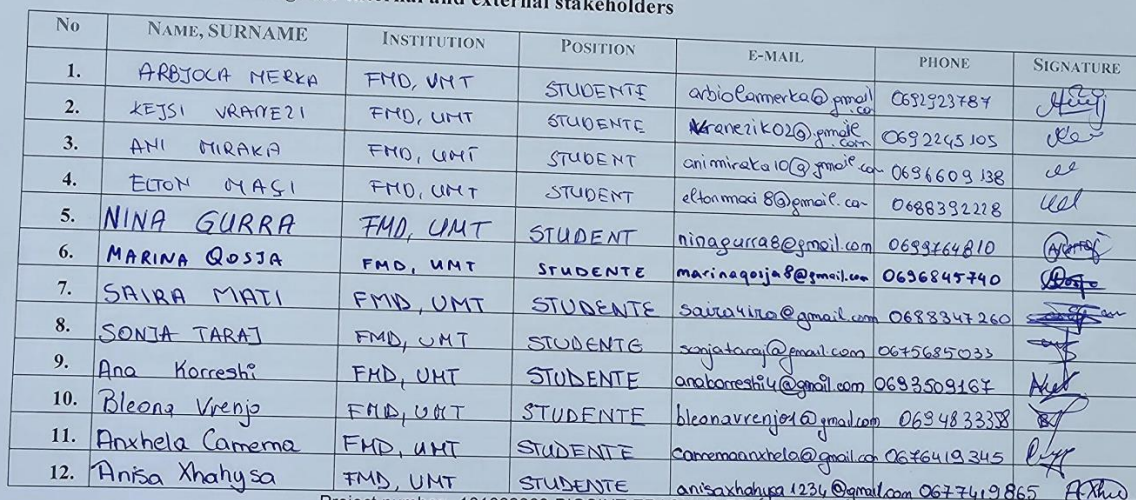 and external stakeholders
No NAME, SURNAME INSTITUTION POSITION E-MAIL PHONE SIGNATURE
1. ARBJOLA MERKA FMD, UMT STUDENTE arbiolamerka@gmail.co 0692923787
2. KEJSI VRANEZI FMD, UMT STUDENTE vranezik02@gmail.com 0692245105
3. ANI MIRAKA FMD, UMT STUDENT animiraka10@gmail.co 0696609138
4. ELTON MAÇI FMD, UMT STUDENT eltonmaci8@gmail.co 0688392228
5. NINA GURRA FMD, UMT STUDENT ninagurra8@gmail.com 0699764810
6. MARINA QOSJA FMD, UMT STUDENTE marinaqosja8@gmail.com 0696845740
7. SAIRA MATI FMD, UMT STUDENTE saira4ira@gmail.com 0688347260
8. SONJA TARAJ FMD, UMT STUDENTE sonjataraj@gmail.com 0675685033
9. Ana Korreshi FMD, UMT STUDENTE anakorreshi4@gmail.com 0693509167
10. Bleona Vrenjo FMD, UMT STUDENTE bleonavrenjo1@gmail.com 0694833358
11. Anxhela Camema FMD, UMT STUDENTE camemaanxhela@gmail.co 0676419345
12. Anisa Xhahysa FMD, UMT STUDENTE anisaxhahysa1234@gmail.com 0677419865